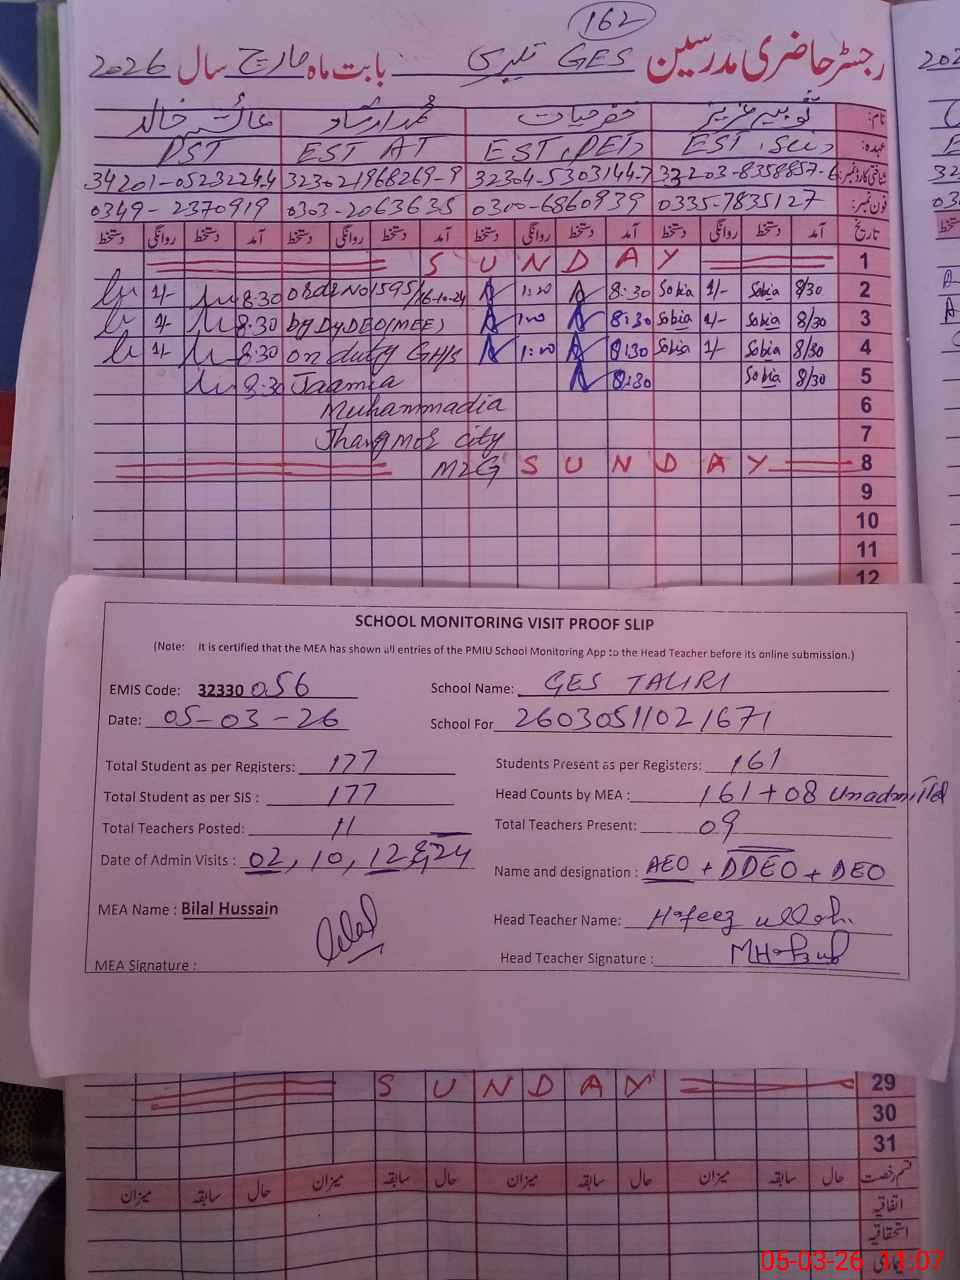 162
رجسٹر حاضری مدرسین GES تلیری بابت ماہ مارچ سال 2026
نام: ثوبیہ عزیز خضر حیات محمد ارشاد عائشہ خالد
عہدہ: EST (Sci) EST (PET) EST AT PST
شناختی کارڈ نمبر: 32203-8358857-6 32304-5303144-7 323021968269-9 34201-0523224-4
فون نمبر: 0335-7835127 0300-6860939 0303-2063635 0349-2370919
تاریخ آمد دستخط روانگی دستخط آمد دستخط روانگی دستخط آمد دستخط روانگی دستخط آمد دستخط روانگی دستخط
1 SUNDAY
2 8/30 Sobia 1/- Sobia 8:30 1:00 order No 1595/16-10-24 8:30 1/-
3 8/30 Sobia 1/- Sobia 8:30 1:00 by DyDEO (MEE) 8:30 1/-
4 8/30 Sobia 1/- Sobia 8:30 1:00 on duty GH/S 8:30 1/-
5 8/30 Sobia 8:30 Jaamia 8:30
6 Muhammadia
7 Jhangmor city
8 MZG SUNDAY
9
10
11
12
SCHOOL MONITORING VISIT PROOF SLIP
(Note: It is certified that the MEA has shown all entries of the PMIU School Monitoring App to the Head Teacher before its online submission.)
EMIS Code: 32330 056 School Name: GES TALIRI
Date: 05-03-26 School For 26030511021671
Total Student as per Registers: 177 Students Present as per Registers: 161
Total Student as per SIS : 177 Head Counts by MEA : 161+08 Unadmitted
Total Teachers Posted: 11 Total Teachers Present: 09
Date of Admin Visits : 02, 10, 12 & 24 Name and designation : AEO + DDEO + DEO
MEA Name : Bilal Hussain Head Teacher Name: Hafeez ullah
MEA Signature : Bilal Head Teacher Signature :
29 SUNDAY
30
31
قسم رخصت حال سابقہ میزان حال سابقہ میزان حال سابقہ میزان حال سابقہ میزان
اتفاقیہ
استحقاقیہ
05-03-26 11:07